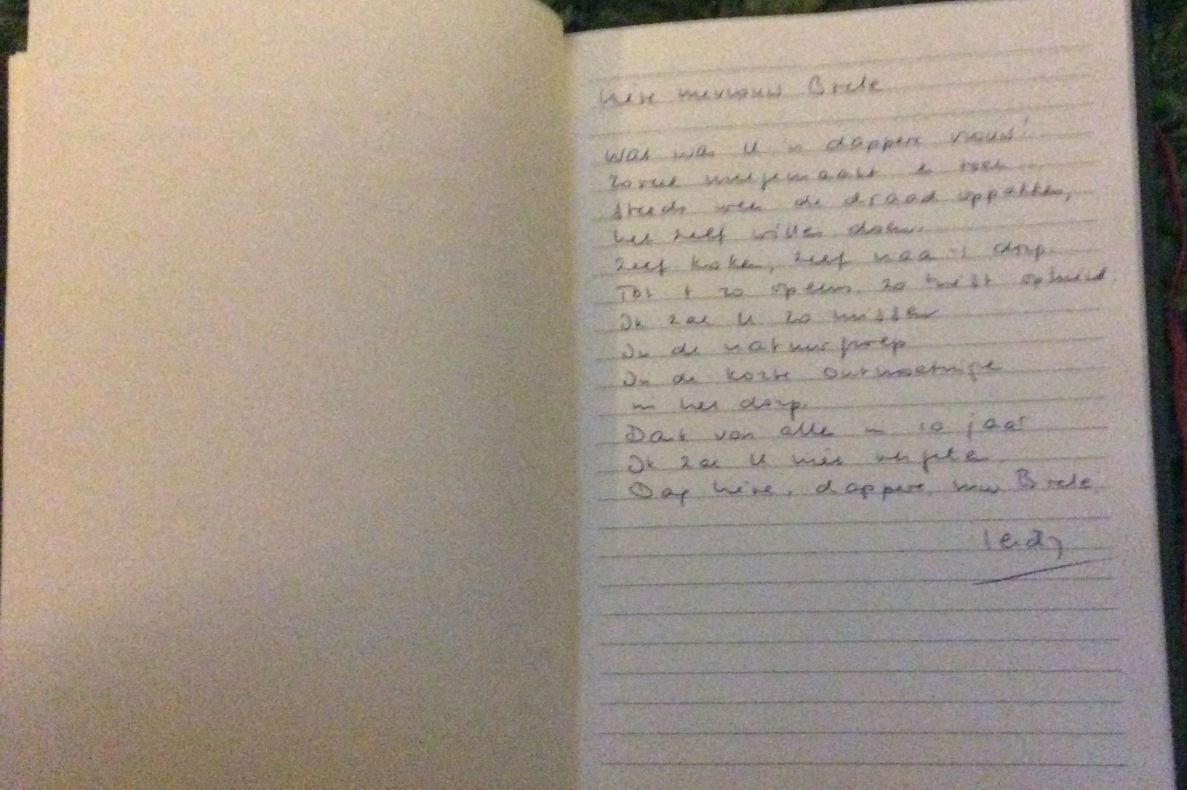 Lieve mevrouw Brele
Wat was u 'n dappere vrouw!
Zoveel meegemaakt en toch
steeds weer de draad oppakken,
het zelf willen doen.
Zelf koken, zelf naar 't dorp.
Tot 't zo opeens zo triest ophield.
Ik zal u zo missen
In de natuurgroep
In de korte ontmoetingen
in het dorp.
Dank voor alles in 10 jaar
Ik zal u niet vergeten
Dag lieve, dappere, mw Brele.